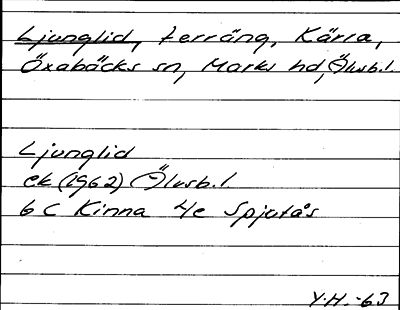 Ljunglid, terräng, Kärra,
Öxabäcks sn, Marks hd, Älvsb.l.
Ljunglid
ek (1962) Älvsb.l.
6 C Kinna 4e Spjutås
Y.H. -63